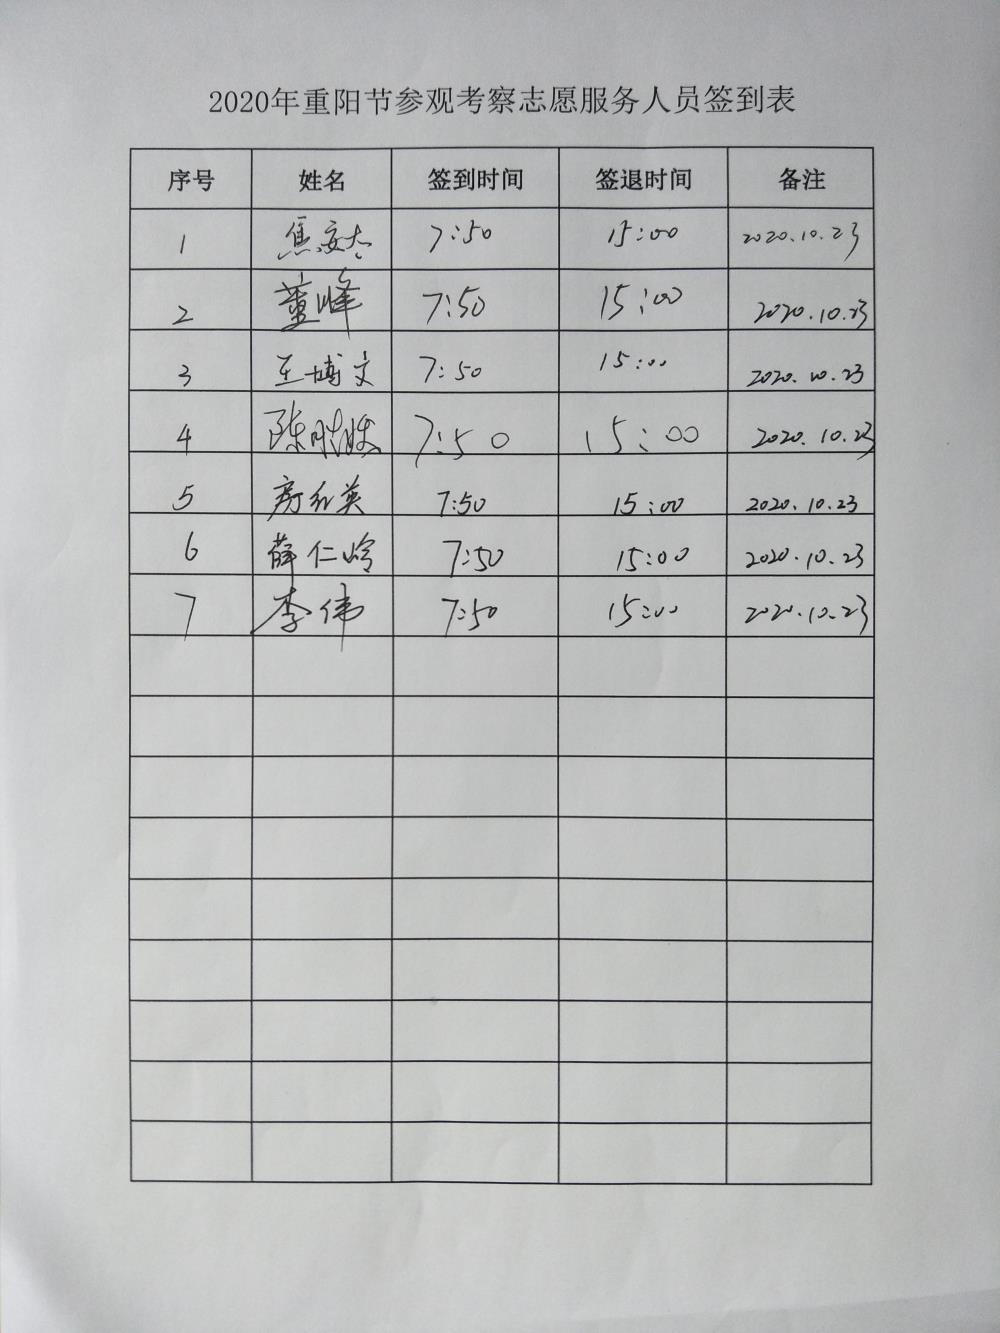 2020年重阳节参观考察志愿服务人员签到表
序号 姓名 签到时间 签退时间 备注
1 焦 7:50 15:00 2020.10.23
2 董峰 7:50 15:00 2020.10.23
3 王博文 7:50 15:00 2020.10.23
4 陈 7:50 15:00 2020.10.23
5 房红英 7:50 15:00 2020.10.23
6 薛仁岭 7:50 15:00 2020.10.23
7 李伟 7:50 15:00 2020.10.23